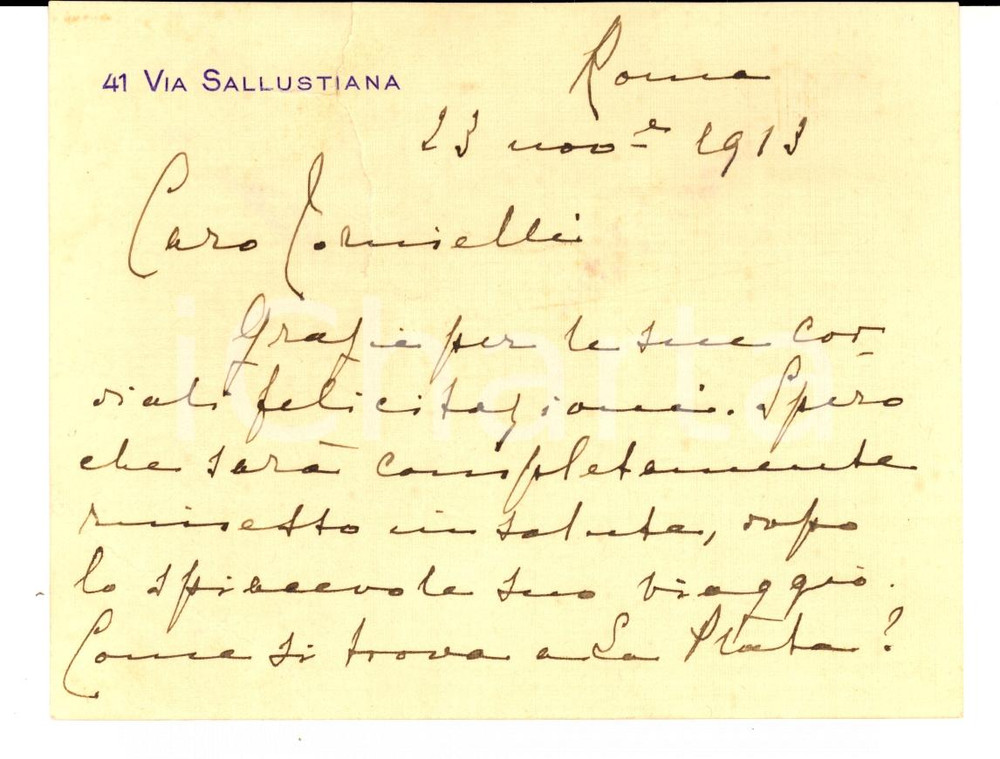 41 VIA SALLUSTIANA
Roma
23 nov.e 1913
Caro Tornielli
Grazie per le sue cor-
diali felicitazioni. Spero
che sarà completamente
rimesso in salute, dopo
lo spiacevole suo viaggio.
Come si trova a La Plata?
iCharta